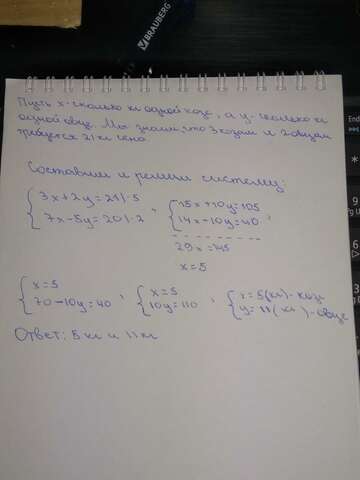 BRAUBERG
Пусть x-сколько кг одной козе, а y-сколько кг
одной овце. Мы знаем, что 3 козам и 2 овцам
требуется 21 кг сена.
Составим и решим систему:
{3x+2y=21|·5 , {15x+10y=105
{7x-5y=20|·2 {14x-10y=40 ,
29x=145
x=5
{x=5 , {x=5 , {x=5(кг)-козе
{70-10y=40 {10y=110 {y=11(кг)-овце
Ответ: 5 кг и 11 кг
End